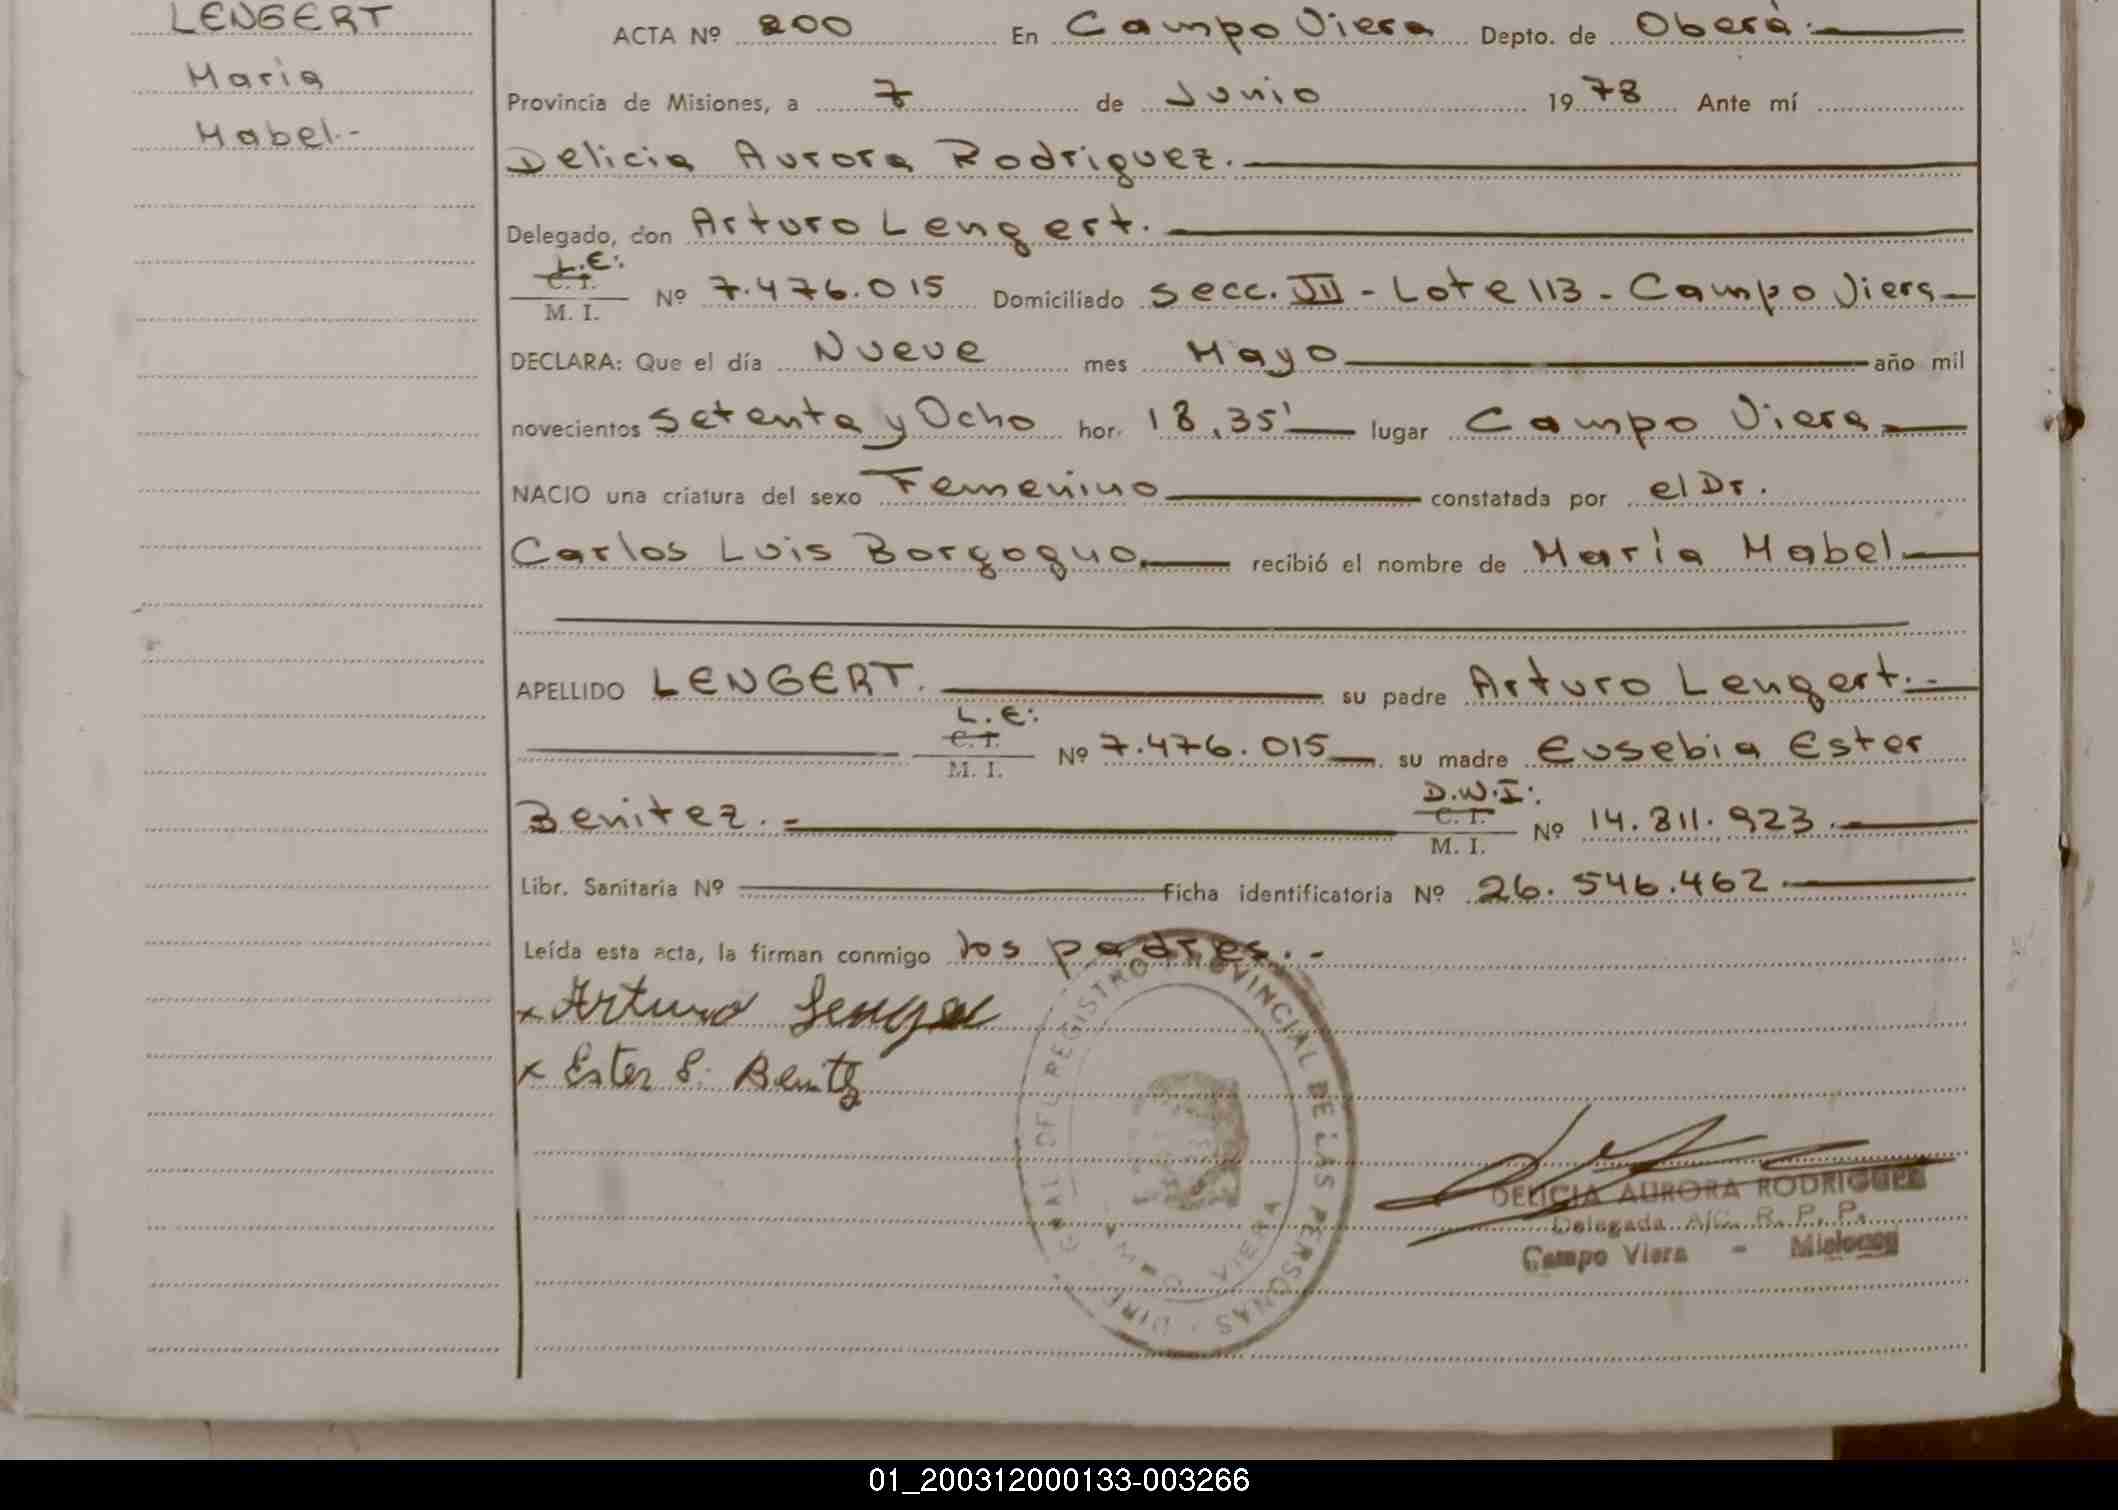 LENGERT
Maria
Mabel.-
ACTA Nº 200 En Campo Viera Depto. de Oberá.
Provincia de Misiones, a 7 de Junio 1978 Ante mí
Delicia Aurora Rodriguez.
Delegado, don Arturo Lengert.
L.E:
C. I.
M. I. Nº 7.476.015 Domiciliado Secc. VII - Lote 113 - Campo Viera
DECLARA: Que el día Nueve mes Mayo año mil
novecientos Setenta y Ocho hor. 18,35' lugar Campo Viera
NACIO una criatura del sexo Femenino constatada por el Dr.
Carlos Luis Borgogno recibió el nombre de María Mabel
APELLIDO LENGERT. su padre Arturo Lengert.-
L.E:
C. I.
M. I. Nº 7.476.015 su madre Eusebia Ester
Benitez.-
D.N.I:
C. I.
M. I. Nº 14.811.923
Libr. Sanitaria Nº Ficha identificatoria Nº 26.546.462
Leída esta acta, la firman conmigo los padres.-
x Arturo
x Ester E. Benitez
REGISTRO PROVINCIAL DE LAS PERSONAS
VIERA
DELICIA AURORA RODRIGUEZ
Delegada A/C. R. P. P.
Campo Viera - Misiones
01_200312000133-003266